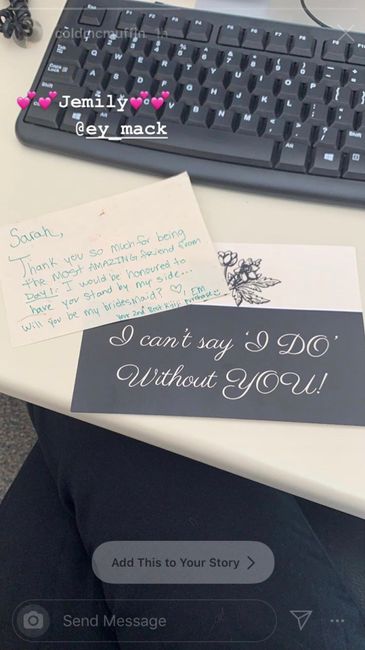 coldmcmuffin 1h
💕💕Jemily💕💕
@ey_mack
Sarah,
Thank you so much for being
the MOST AMAZING friend from
Day 1! I would be honoured to
have you stand by my side...
Will you be my bridesmaid? ♡, Em
Your 2nd Best Kijiji Purchase
I can't say 'I DO'
Without YOU!
Add This to Your Story >
Send Message